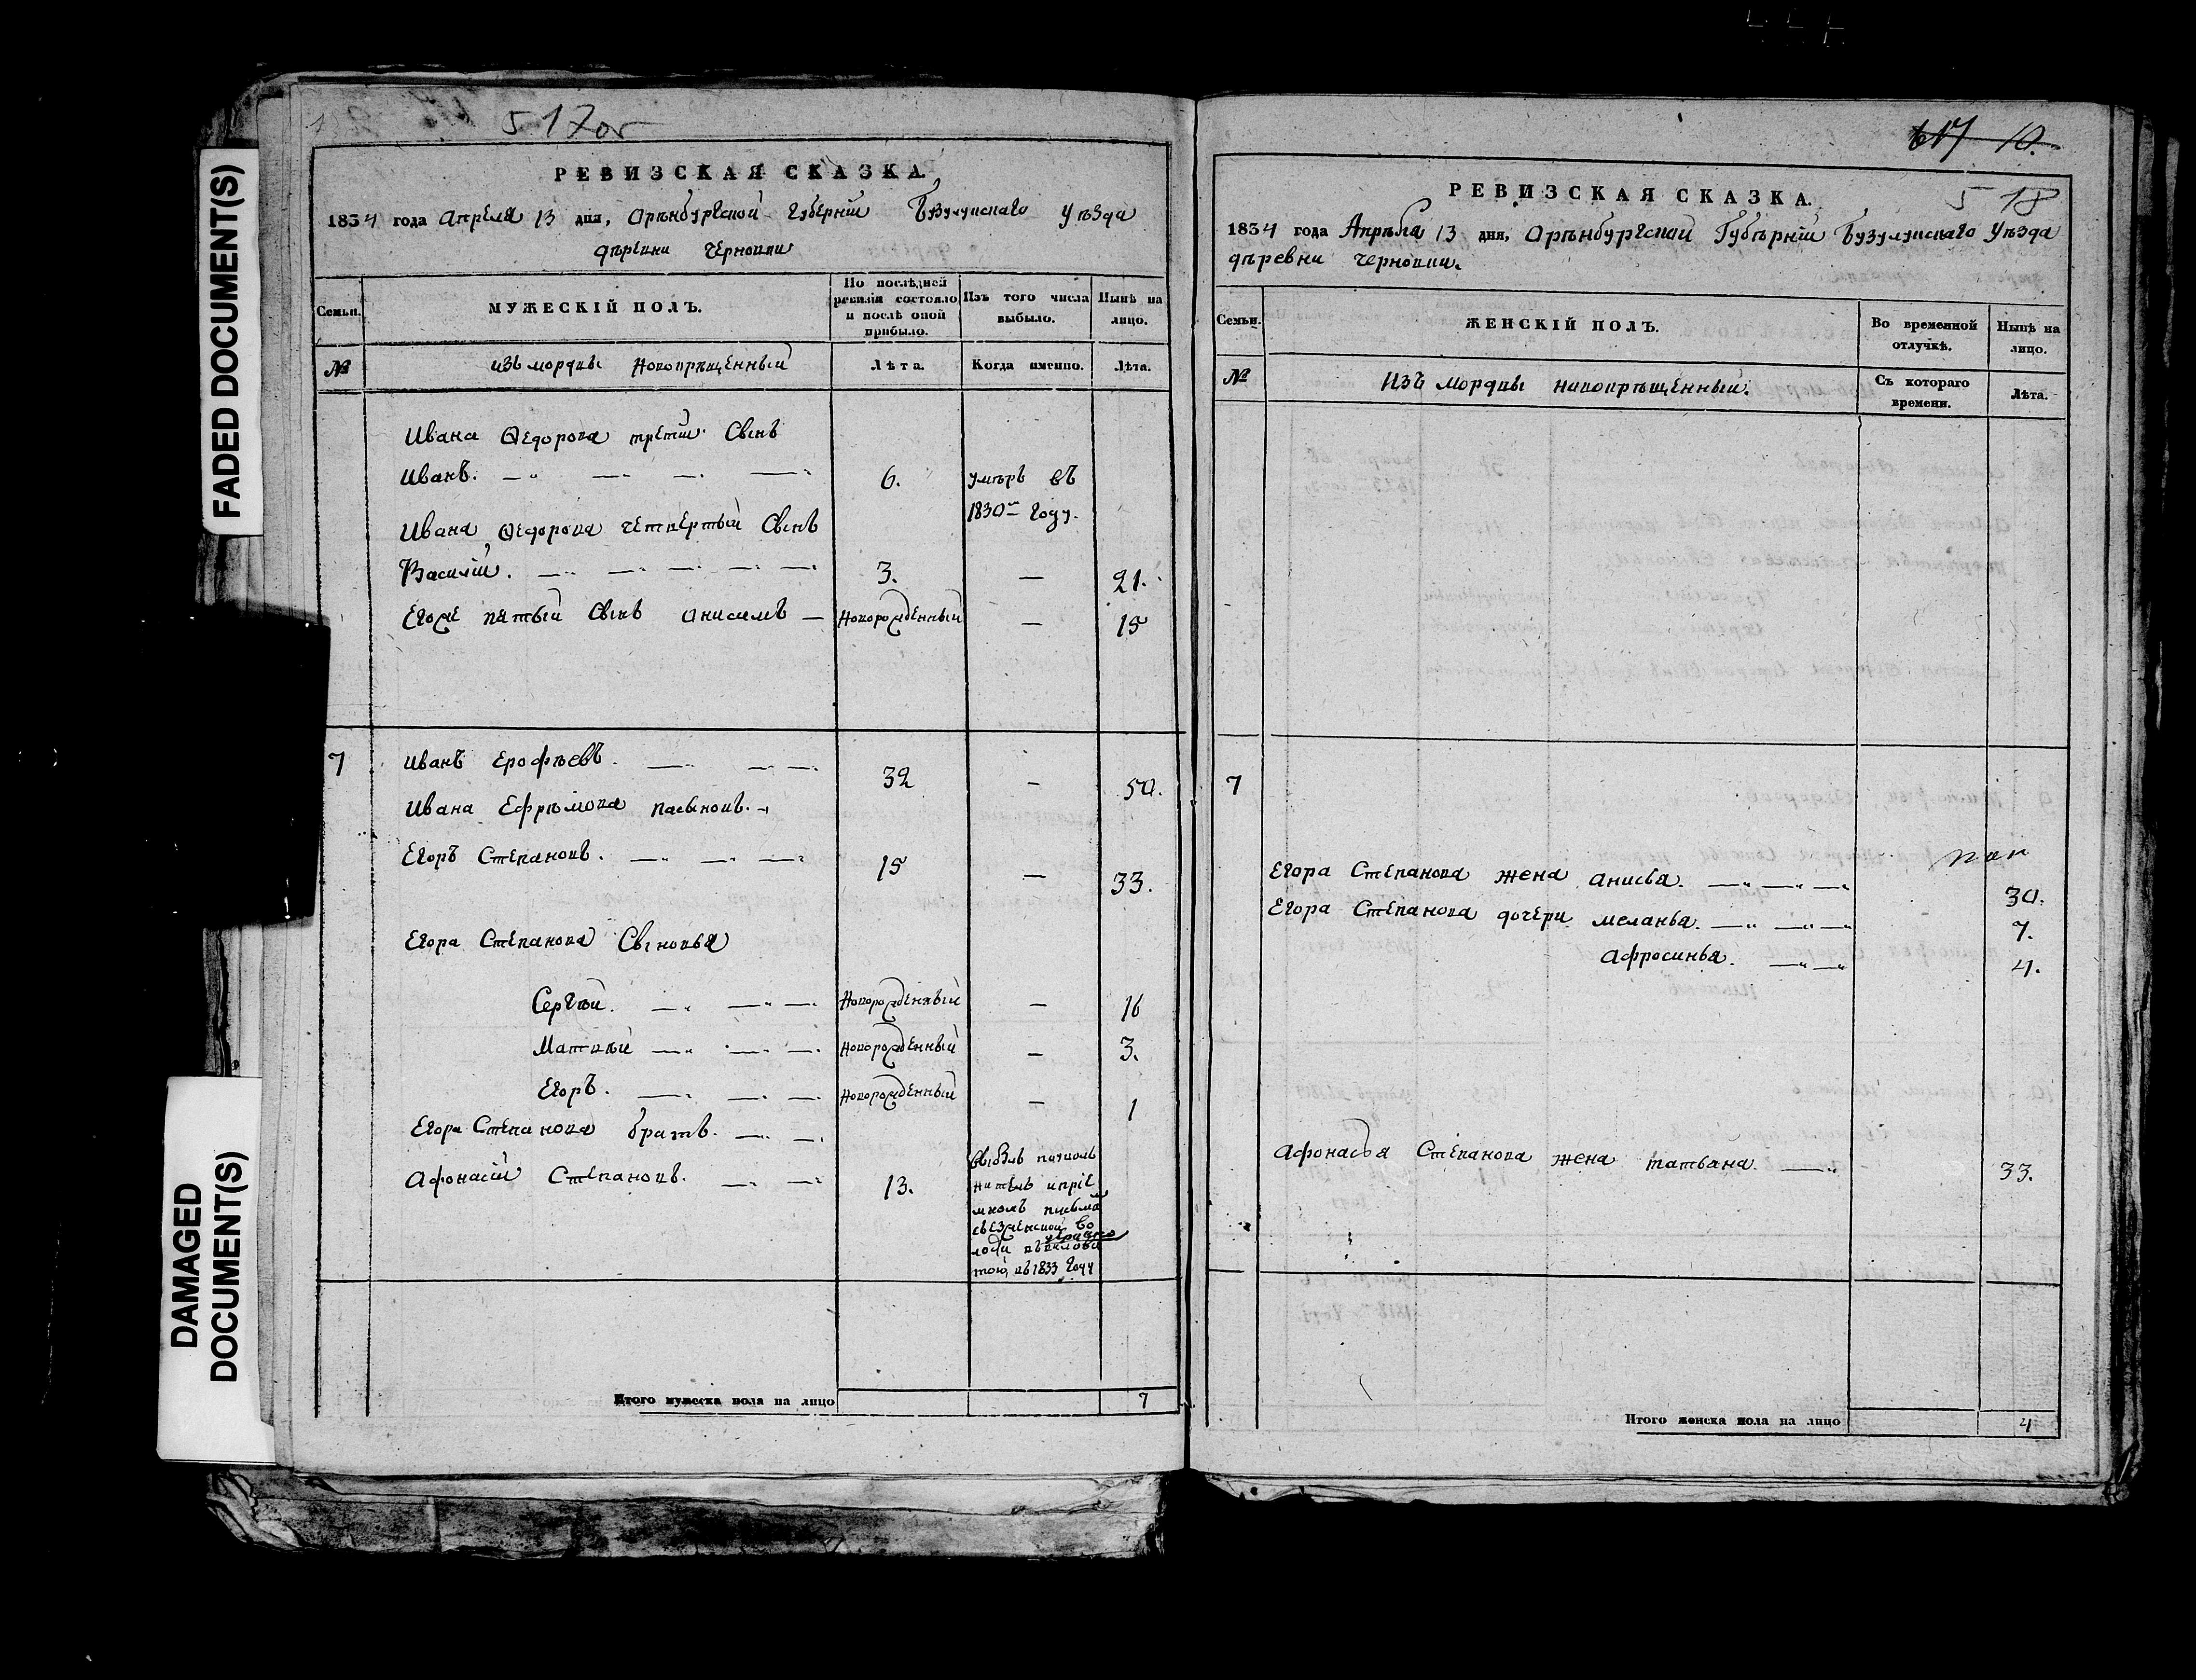 FADED DOCUMENT(S)
DAMAGED
DOCUMENT(S)
517об
РЕВИЗСКАЯ СКАЗКА.
1834 года Апреля 13 дня, Оренбургской Губерніи Бузулускаго Уѣзда
дѣревни Черновки
Семьи.
МУЖЕСКІЙ ПОЛЪ.
По послѣдней
ревизіи состояло
и послѣ оной
прибыло.
Изъ того числа
выбыло.
Нынѣ на
лицо.
№
изъ мордвы новокрѣщенный
Лѣта.
Когда именно.
Лѣта.
Ивана Ѳедорова третiй Сынъ
Иванъ. 6. умѣръ въ
1830м году.
Ивана Ѳедорова четвертый Сынъ
Василій. 3. — 21.
Егоже пятый Сынъ Анисимъ — Новорожденный — 15
7 Иванъ Ерофѣевъ. 32 — 50.
Ивана Ефрѣмова пасынокъ.
Егоръ Степановъ. 15 — 33.
Егора Степанова Сыновья
Сергѣй. Новорожденный — 16
Матвѣй Новорожденный — 3.
Егоръ. Новорожденный — 1
Егора Степанова братъ.
Афонасій Степановъ. 13.
въ 1833 году
Итого мужеска пола на лицо 7
10.
518
РЕВИЗСКАЯ СКАЗКА.
1834 года Апрѣля 13 дня, Орѣнбургской Губѣрніи Бузулускаго Уѣзда
дѣревни Черновки.
Семьи.
ЖЕНСКІЙ ПОЛЪ.
Во временной
отлучкѣ.
Нынѣ на
лицо.
№
Изъ мордвы новокрѣщенный.
Съ котораго
времени.
Лѣта.
7
Егора Степанова жена Анисья. 30.
Егора Степанова дочери Меланья. 7.
Афросинья. 4.
Афонасья Степанова жена Татьана. 33.
Итого женска пола на лицо 4